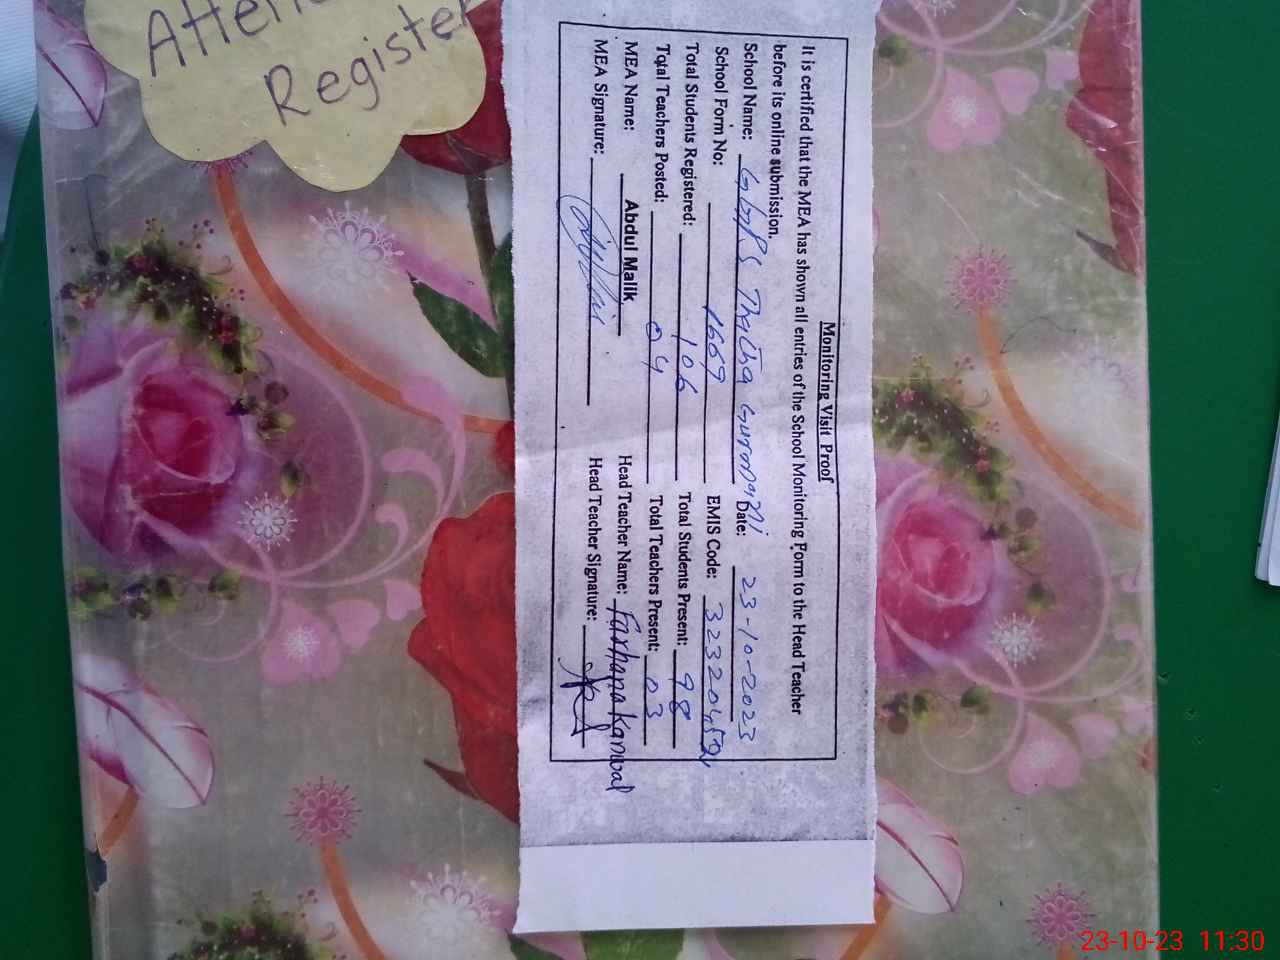 Register
Monitoring Visit Proof
It is certified that the MEA has shown all entries of the School Monitoring Form to the Head Teacher
before its online submission.
School Name: GGPS Thatha Gurmani Date: 23-10-2023
School Form No: 1669 EMIS Code:
Total Students Registered: 106 Total Students Present: 98
Total Teachers Posted: 04 Total Teachers Present: 03
MEA Name: Abdul Malik Head Teacher Name: Farhana Kanwal
MEA Signature: Head Teacher Signature:
23-10-23 11:30